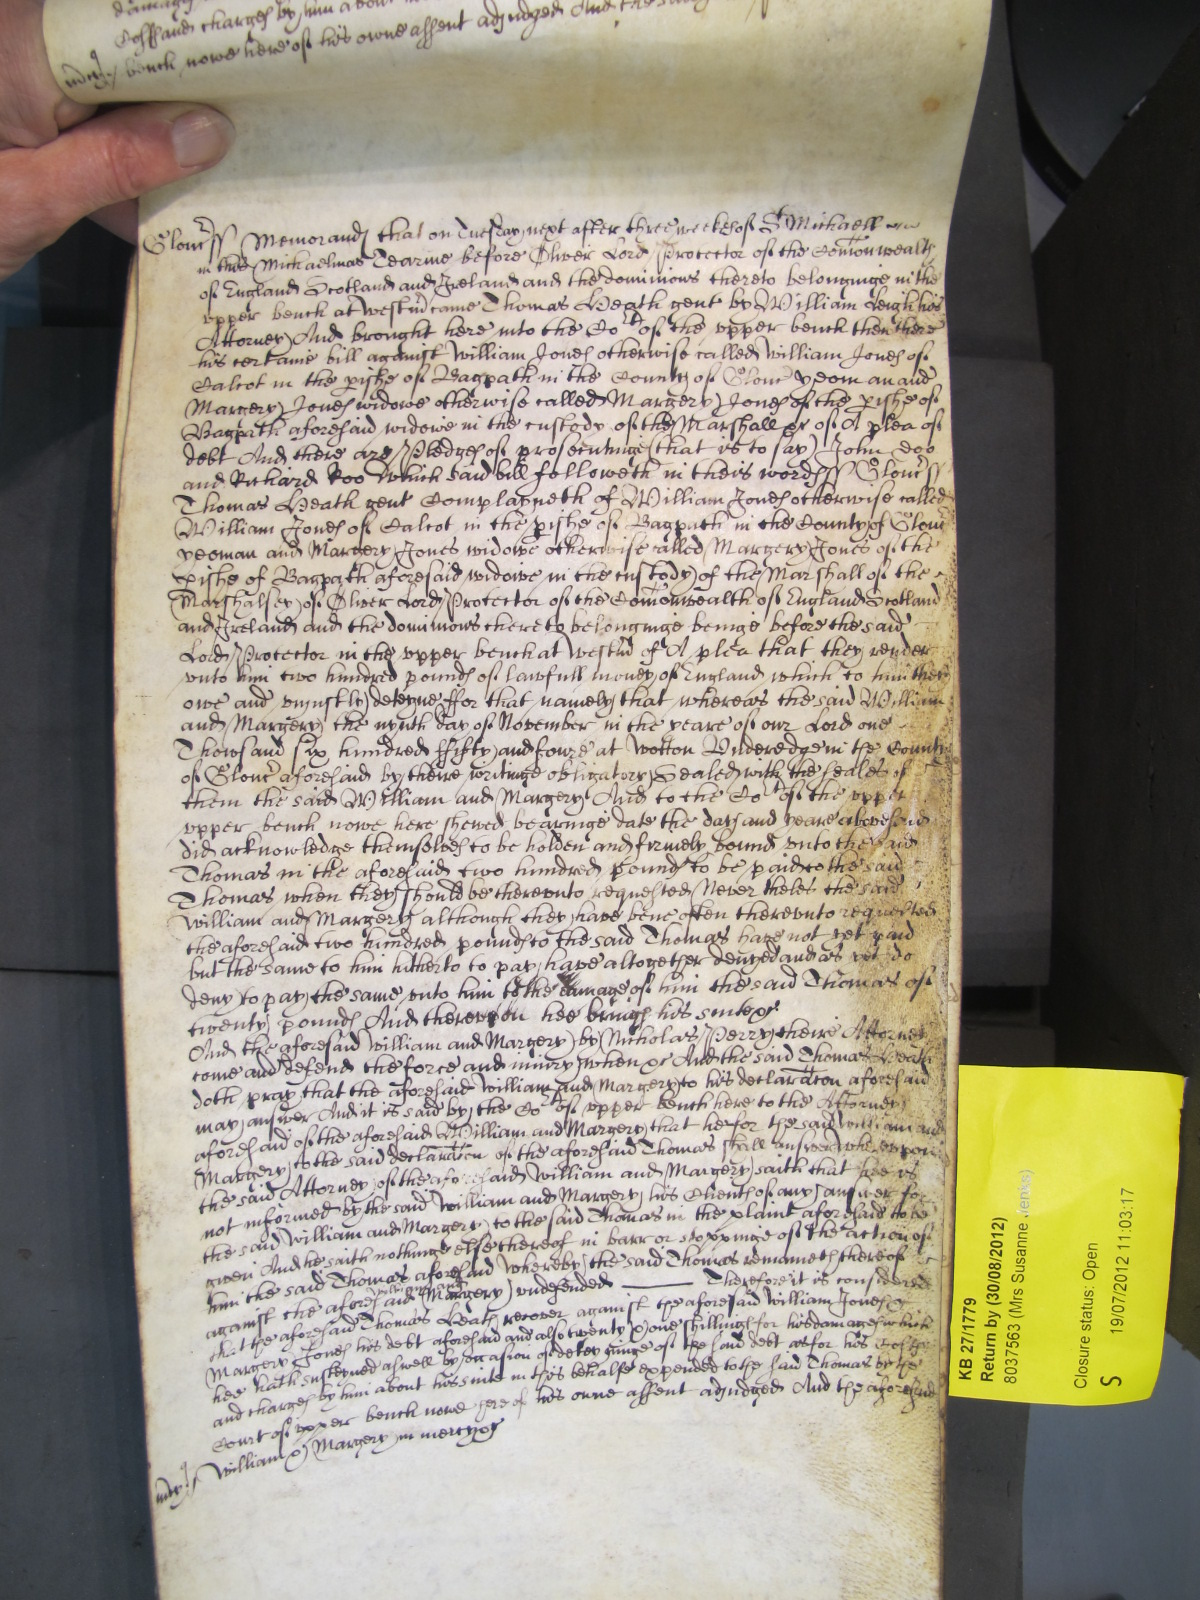 damages
Costs and charges by him about
bench nowe here of his owne assent adjudged And the
Glouc ss Memorand that on Tuesday next after three weekes of St Michaell
in this Michaelmas Tearme before Oliver Lord Protector of the Comonwealth
of England Scotland and Ireland and the dominions thereto belonginge in the
upper bench at westm came Thomas Heath gent by William Leigh his
Attorney And brought here into the Cort of the upper bench then there
his certaine bill against William Jones otherwise called William Jones of
Calcot in the pishe of Bagpath in the County of Glouc yeoman and
Margery Jones widowe otherwise called Margery Jones of the pishe of
Bagpath aforesaid widowe in the custody of the Marshall &c of A plea of
debt And there are Pledges of prosecutinge (that is to say) John Doo
and Richard Roo Which said bill followeth in theis words ss Glouc ss
Thomas Heath gent Complayneth of William Jones otherwise called
William Jones of Calcot in the pishe of Bagpath in the County of Glouc
yeoman and Margery Jones widowe otherwise called Margery Jones of the
pishe of Bagpath aforesaid widowe in the custody of the Marshall of the
Marshalsey of Oliver Lord Protector of the Comonwealth of England Scotland
and Ireland and the dominions thereto belonginge beinge before the said
Lord Protector in the upper bench at westm of A plea that they render
unto him two hundred pounds of lawfull money of England which to him they
owe and unjustly deteyne ffor that namely that whereas the said William
and Margery the nynth day of November in the yeare of our Lord one
Thowsand six hundred ffifty and fowre at Wotton Underedge in the County
of Glouc aforesaid by theire writinge obligatory Sealed with the seales of
them the said William and Margery And to the Cort of the upper
upper bench nowe here shewed bearinge date the day and yeare abovesaid
did acknowledge themselves to be holden and firmely bound unto the said
Thomas in the aforesaid two hundred pounds to be paid to the said
Thomas when they should be thereunto requested Never theles the said
William and Margery although they have bene often thereunto requested
the aforesaid two hundred pounds to the said Thomas have not yet paid
but the same to him hitherto to pay have altogether denyed and as yet do
deny to pay the same unto him to the damage of him the said Thomas of
twenty pounds And thereupon hee brings his suite &c
And the aforesaid William and Margery by Nicholas Perry theire Attorney
come and defend the force and injury when &c And the said Thomas Heath
doth pray that the aforesaid William and Margery to his declaracon aforesaid
may answer And it is said by the Cort of upper bench here to the Attorney
aforesaid of the aforesaid William and Margery that he for the said William and
Margery to the said declaracon of the aforesaid Thomas shall answer whereupon
the said Attorney of the aforesaid William and Margery saith that hee is
not informed by the said William and Margery his Clients of any answer for
the said William and Margery to the said Thomas in the plaint aforesaid to be
given And he saith nothinge else thereof in barr or stoppinge of the action of
him the said Thomas aforesaid whereby the said Thomas remaineth thereof
against the aforesaid William and Margery undefended Therefore it is considered
that the aforesaid Thomas Heath recover against the aforesaid William Jones &
Margery Jones his debt aforesaid and also twenty & one shillings for his damages which
hee hath susteyned aswell by occasion of deteyninge of the said debt as for his Costs
and charges by him about his suite in this behalfe expended to the said Thomas by the
Court of upper bench nowe here of his owne assent adjudged And the aforesaid
William & Margery in mercy &c
KB 27/1779
Return by (30/08/2012)
8037563 (Mrs Susanne Jenks)
Closure status: Open
S 19/07/2012 11:03:17